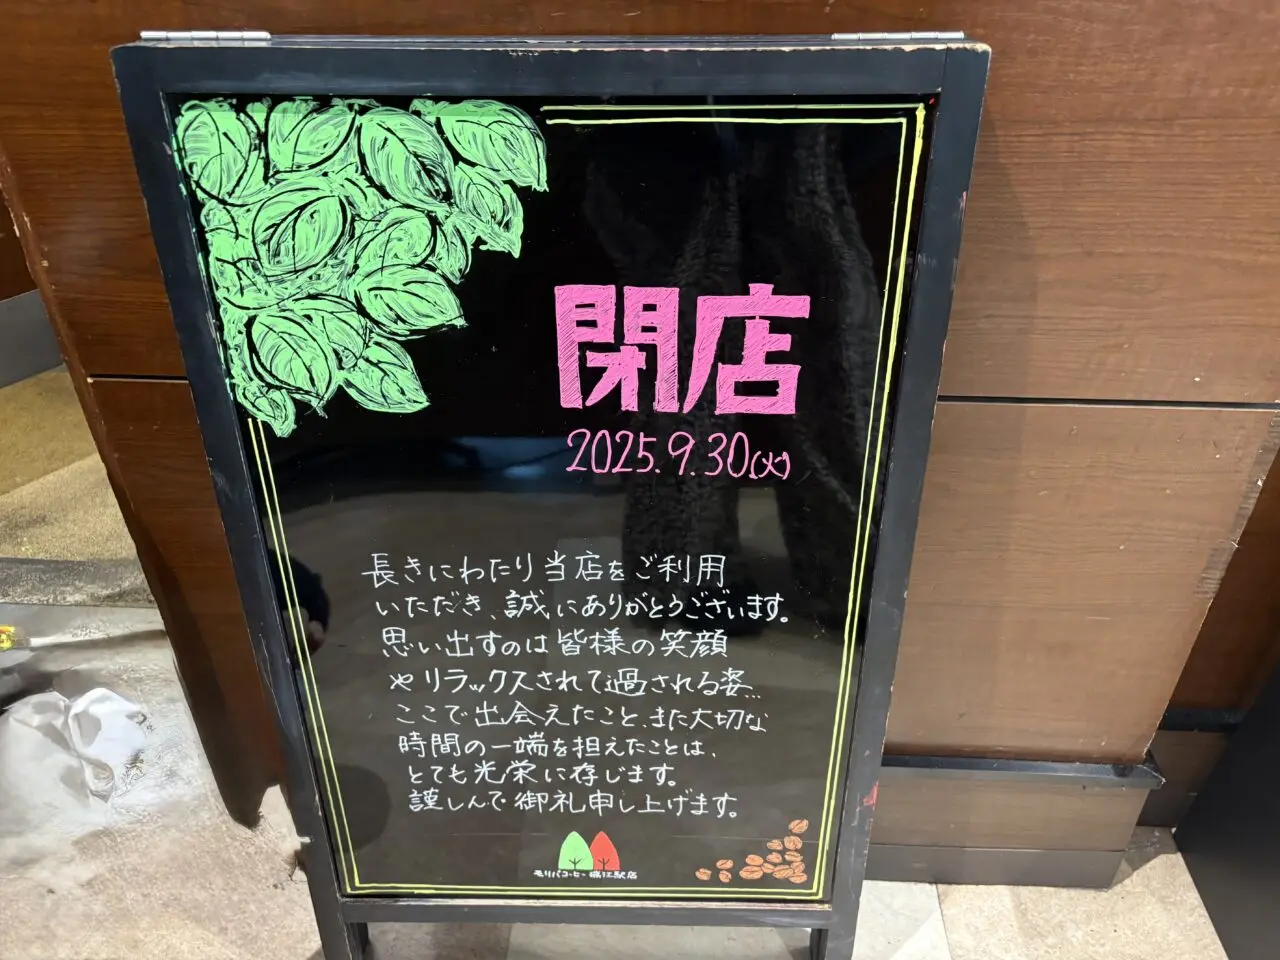 閉店
2025.9.30(火)
長きにわたり当店をご利用
いただき、誠にありがとうございます。
思い出すのは皆様の笑顔
やリラックスされて過される姿…
ここで出会えたこと、また大切な
時間の一端を担えたことは、
とても光栄に存じます。
謹しんで御礼申し上げます。
モリバコーヒー 狛江駅店